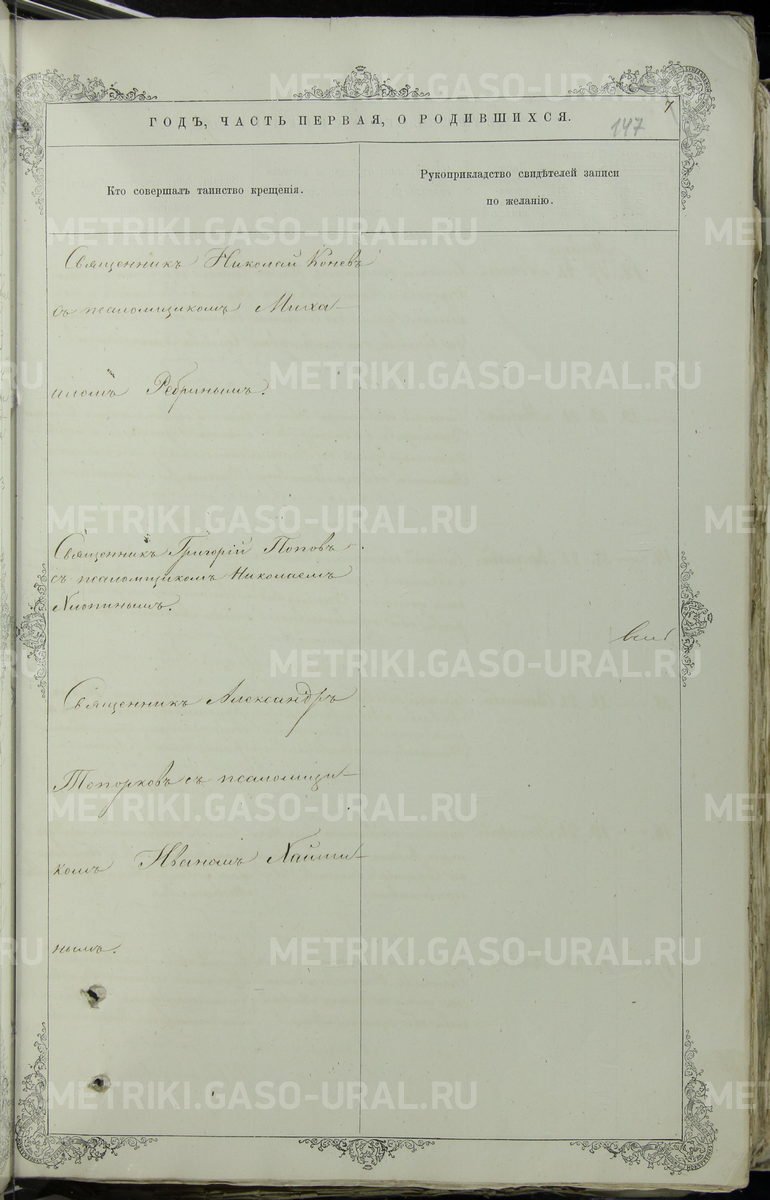 7
147
ГОДЪ, ЧАСТЬ ПЕРВАЯ, О РОДИВШИХСЯ.
Кто совершалъ таинство крещенія.
Рукоприкладство свидѣтелей записи
по желанію.
Священникъ Николай Коневъ
съ псаломщикомъ Миха-
иломъ Ребринымъ.
Священникъ Григорій Поповъ
съ псаломщикомъ Николаемъ
Хлопинымъ.
Священникъ Александръ
Топорковъ съ псаломщи-
комъ Иваномъ
нымъ.
METRIKI.GASO-URAL.RU